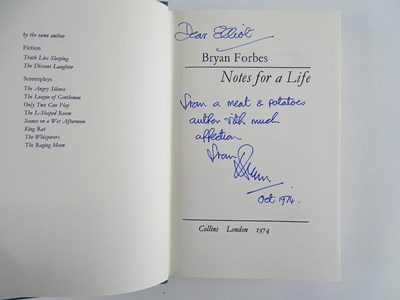 by the same author
Fiction
Truth Lies Sleeping
The Distant Laughter
Screenplays
The Angry Silence
The League of Gentlemen
Only Two Can Play
The L-Shaped Room
Seance on a Wet Afternoon
King Rat
The Whisperers
The Raging Moon
Dear Elliot
Bryan Forbes
Notes for a Life
from a meat & potatoes
author with much
affection
from Bryan
Oct 1974.
Collins London 1974